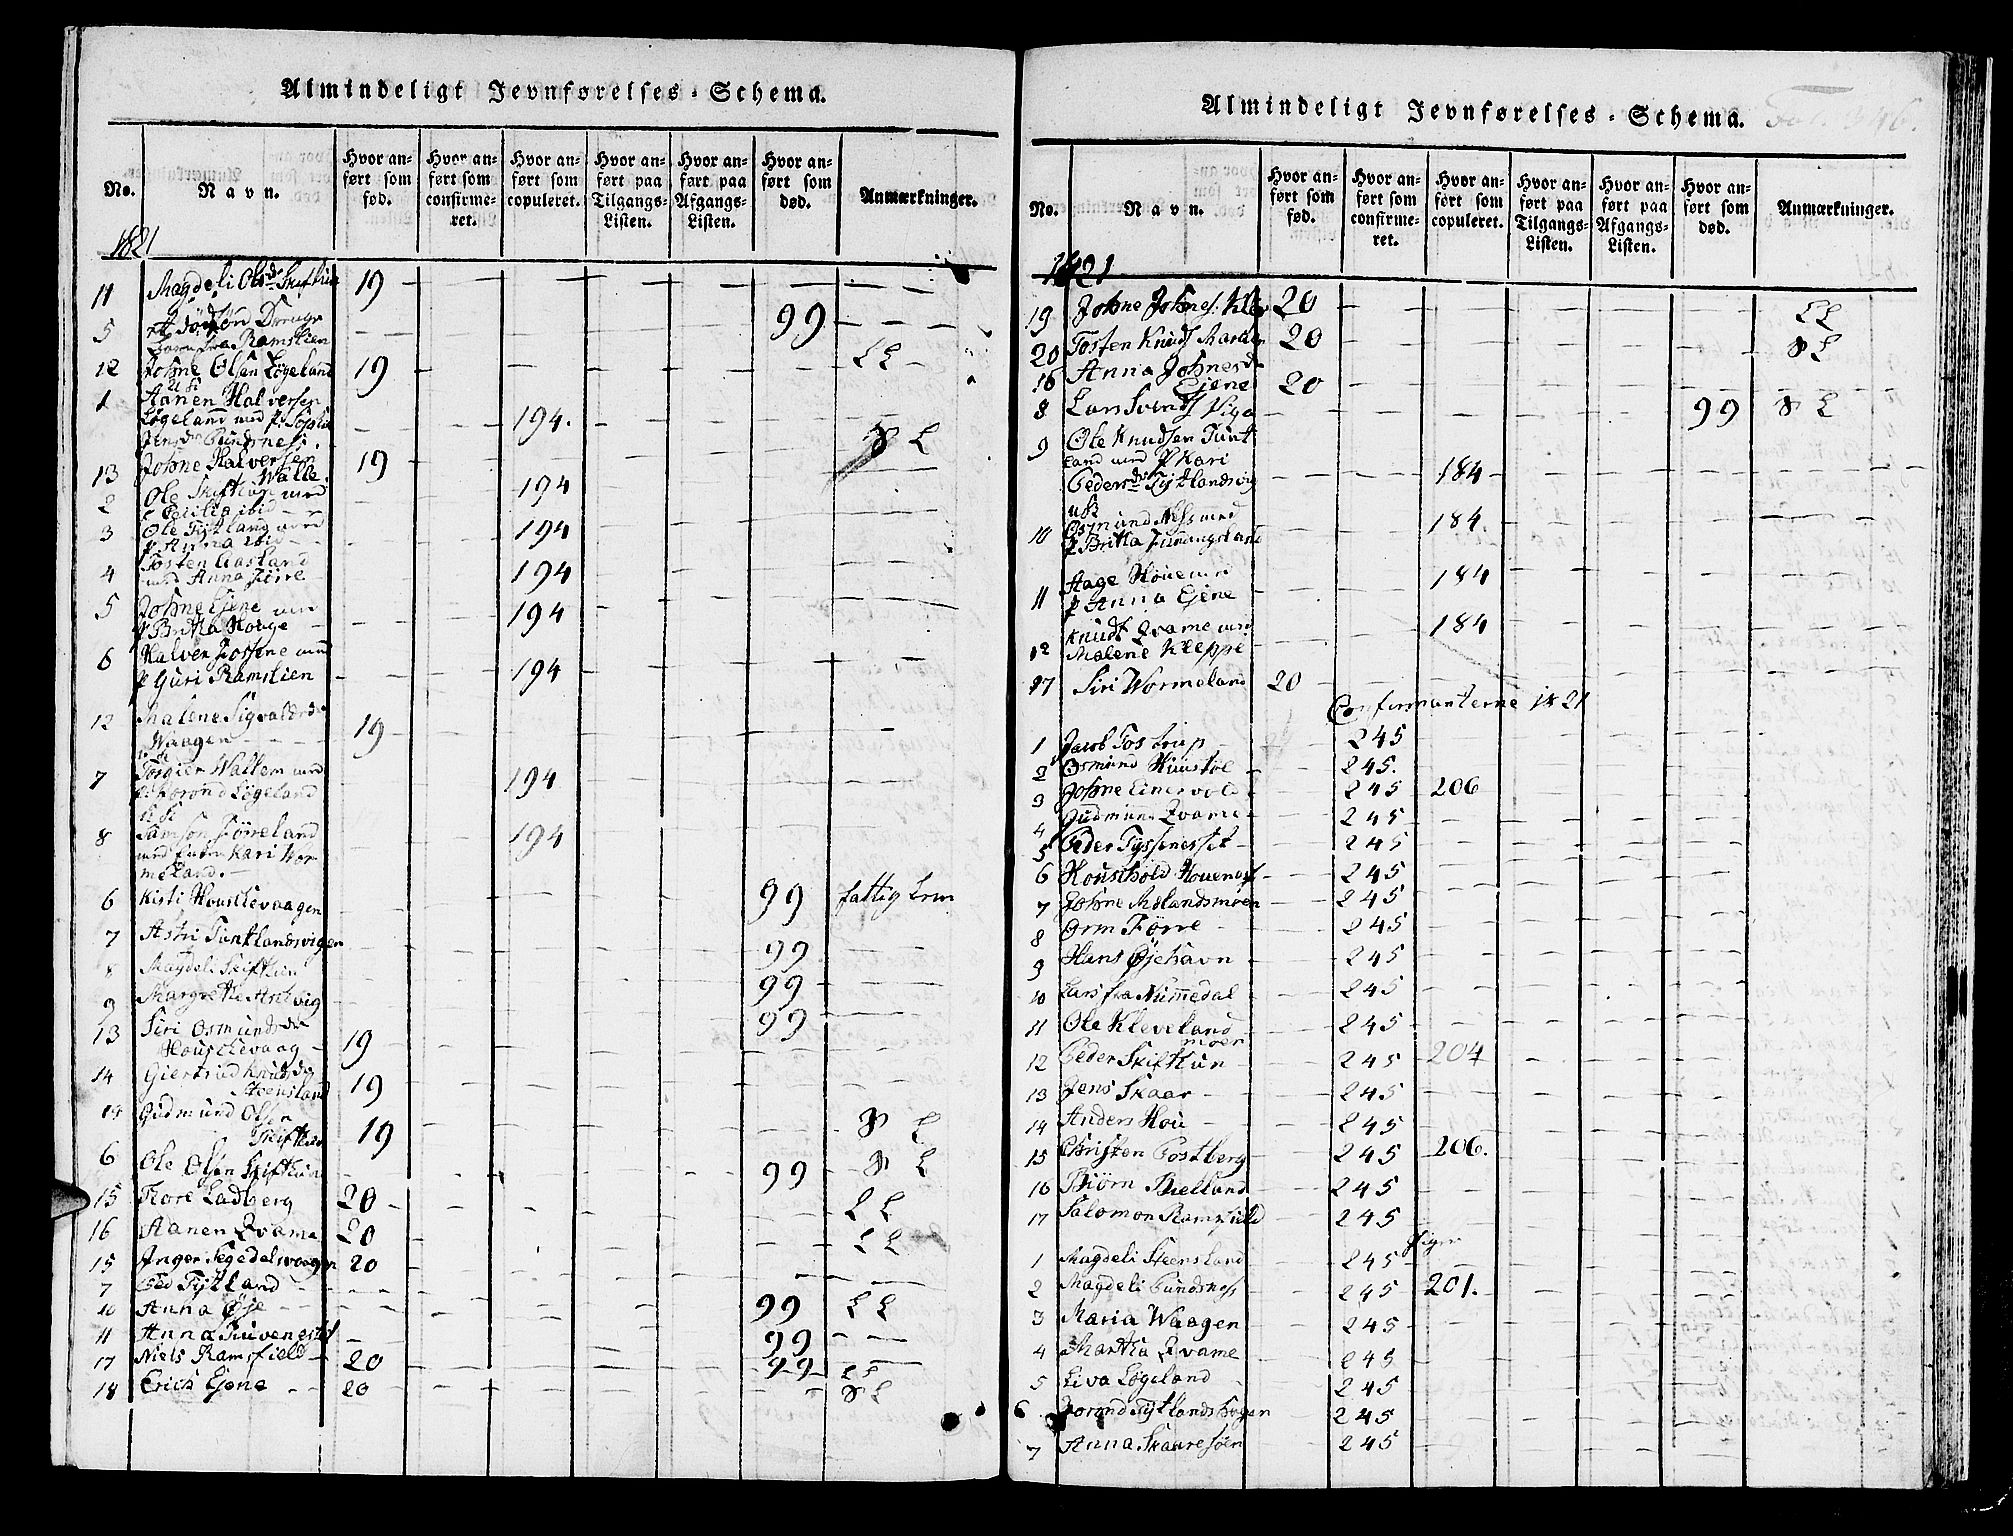 Almindeligt Jevnførelses-Schema.
No. Navn. Hvor anført som fød. Hvor anført som confirmeret. Hvor anført som copuleret. Hvor anført paa Tilgangs-Listen. Hvor anført paa Afgangs-Listen. Hvor anført som død. Anmærkninger.
1821
11 Magdeli Olsdr Skiftun 19
5 Et dødfød Drenge 99
barn fra Ramslien
12 Johne Olsen Løgeland 19 LL
1 Aanen Halversen
Løgeland med P. 194.
13 Johne Halversen 19 S L
Walle
2 Ole Skiftun med 194
P Cecilia ibid
3 Ole Tytland med 194
P Anna ibid
4 Tosten Aasland 194
med Anna Førre
5 Johne Ejene med 194
P Britha Houge
6 Halver Jøssene med
P Guri Ramslien 194
12 Malene Sigvaldsdr
Waagen 19
7 Torgier Wallem med 194
Løgeland
8 Samson Førreland 194
med Enken Kari Wormeland.
6 Kisti Houslievaagen 99 fattig Lem
7 Astri Tuntlandsvigen 99
8 Magdeli Skiftun 99
9 Margrethe Asevig 99
13 Siri Osmundsdr
Houslievaag 19
14 Giertrud Knudsdr
Steensland 19
14 Gudmund Olsen
Skiftun 19 S L
6 Ole Olsen Skiftun 99 S L
15 Tore Ladberg 20 LL
16 Aanen Qvame 20 LL
15 Inger Segedelsvaagen 20
7 Ped Tytland 99 LL
10 Anna Øje 99
11 Anna 99
17 Niels Ramsfield 20 LL
18 Erich Ejene 20 S L
Almindeligt Jevnførelses-Schema. Fol. 346.
No. Navn. Hvor anført som fød. Hvor anført som confirmeret. Hvor anført som copuleret. Hvor anført paa Tilgangs-Listen. Hvor anført paa Afgangs-Listen. Hvor anført som død. Anmærkninger.
1821
19 Johne Johnes. 20 LL
20 Tosten Knuds 20 S L
16 Anna Johnesdr
Ejene 20
8 Lars Svends Viga 99 S L
9 Ole Knudsen Tuntland
med P Kari 184
Pedersdr Tytlandsvig
10 Osmund Næss med 184
P Britha Finnangsland
11 Aage Houe med 184
P Anna Ejene
12 Knud Qvame med 184
Malene Kleppe
17 Siri Wormeland 20
Confirmanterne 1821
1 Jacob Tostrup 245
2 Osmund 245.
3 Johne Einersvold 245 206
4 Gudmund Qvame 245
5 Peder Tyssenesset 245
6 245
7 Johne Mælandsmoen 245
8 Orm Førre 245
9 Hans Øjehavn 245
10 Lars fra Nummedal 245
11 Ole Kleveland 245
moen
12 Peder Skiftun 245 204
13 Jens Skaar 245
14 Anders Hou 245
15 Christen Fostberg 245 206.
16 Biørn Bielland 245
17 Salomon Ramsfield 245
Piger
1 Magdeli Steensland 245
2 Magdeli 245 201.
3 Maria Waagen 245
4 Martha Qvame 245
5 Liva Løgeland 245
6 Jorond Tytlandshagen 245
7 Anna Skaaresøen 245